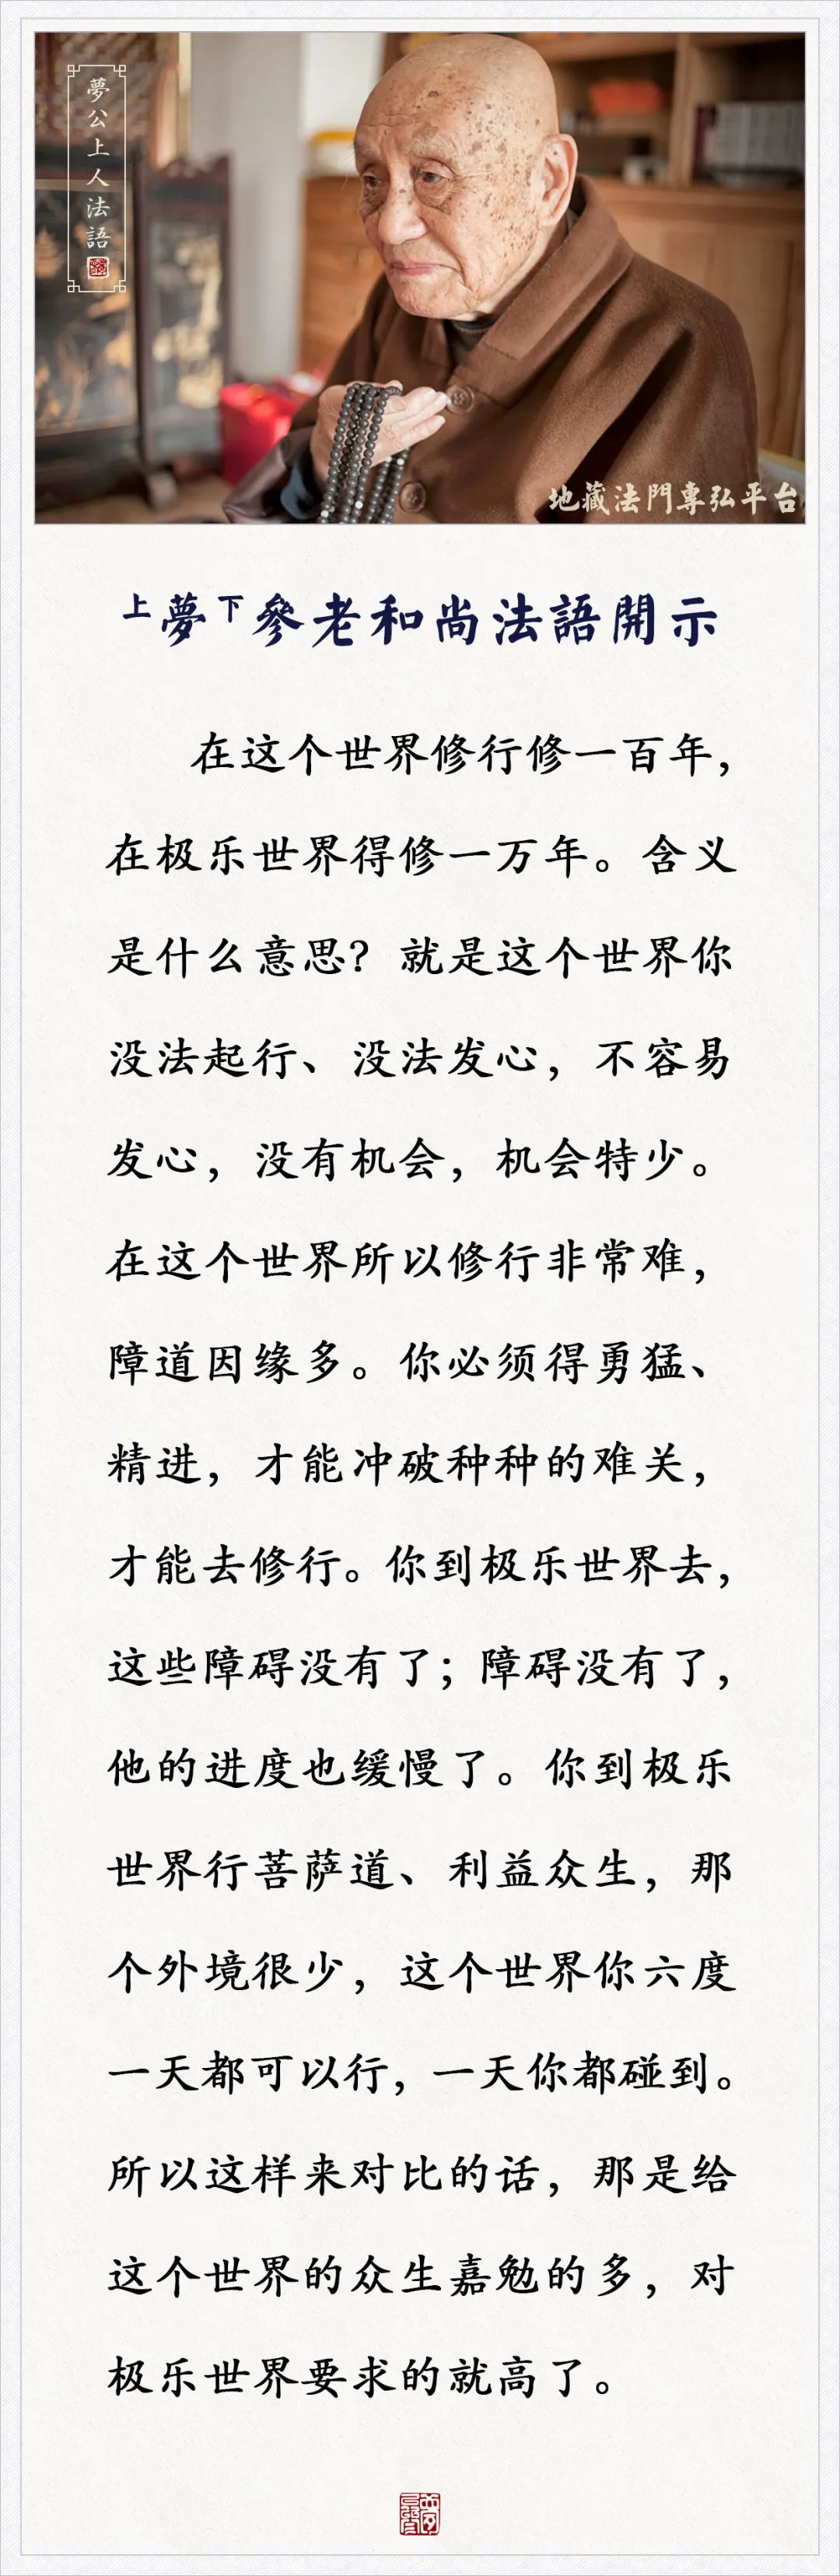 夢公上人法語
地藏法門專弘平台
上夢下參老和尚法語開示
在这个世界修行修一百年，
在极乐世界得修一万年。含义
是什么意思？就是这个世界你
没法起行、没法发心，不容易
发心，没有机会，机会特少。
在这个世界所以修行非常难，
障道因缘多。你必须得勇猛、
精进，才能冲破种种的难关，
才能去修行。你到极乐世界去，
这些障碍没有了；障碍没有了，
他的进度也缓慢了。你到极乐
世界行菩萨道、利益众生，那
个外境很少，这个世界你六度
一天都可以行，一天你都碰到。
所以这样来对比的话，那是给
这个世界的众生嘉勉的多，对
极乐世界要求的就高了。